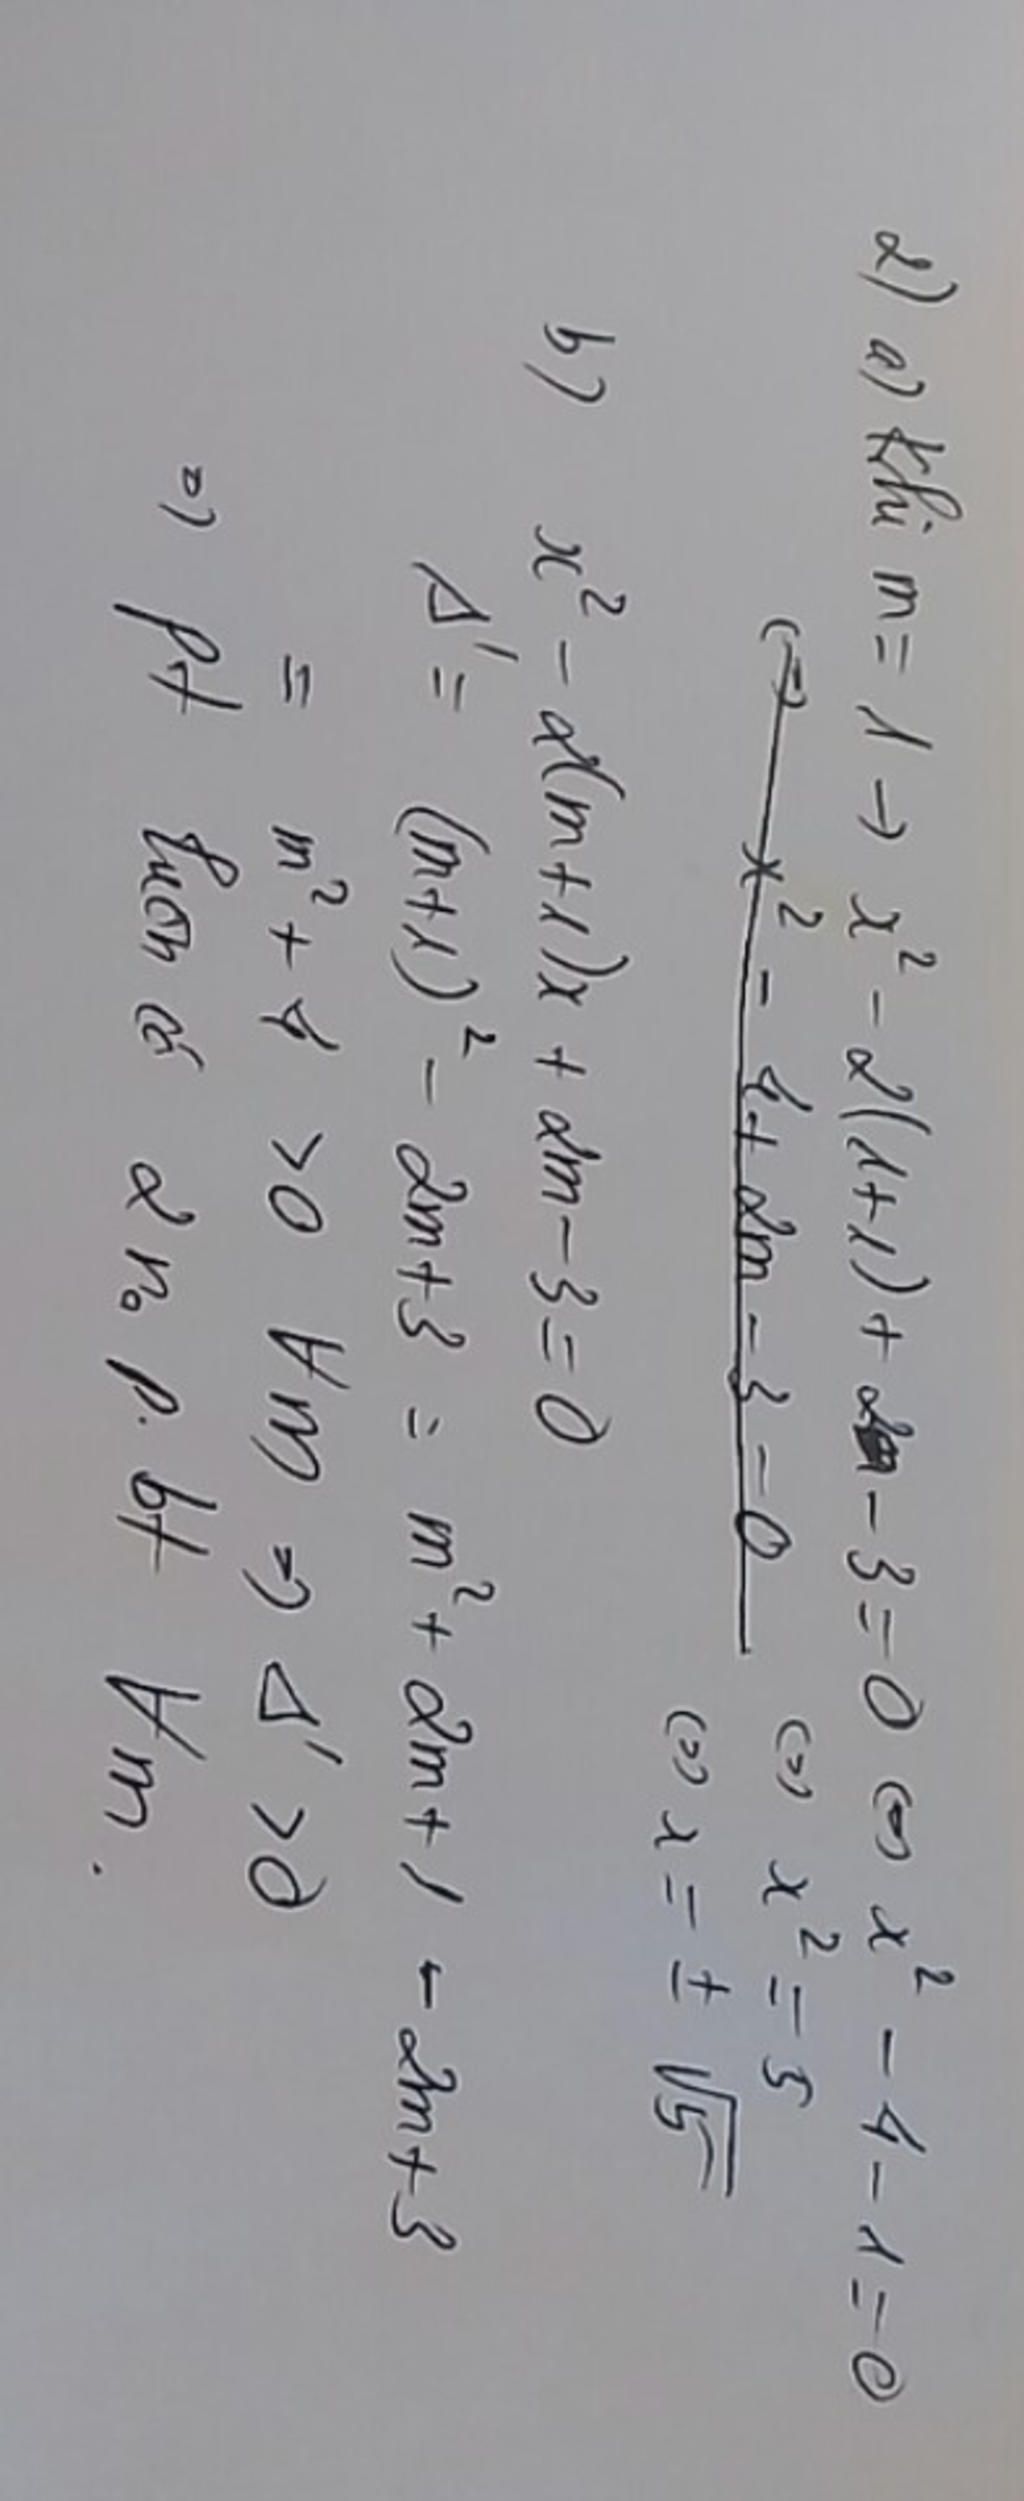 2) a) khi m = 1 → x² - 2(1+1) + 2 - 3 = 0 ⇔ x² - 4 - 1 = 0
⇔ x² - 4 + 2m - 3 = 0 ⇔ x² = 5
⇔ x = ± √5
b) x² - 2(m+1)x + 2m - 3 = 0
Δ' = (m+1)² - 2m + 3 = m² + 2m + 1 - 2m + 3
= m² + 4 > 0 ∀m ⇒ Δ' > 0
⇒ pt luôn có 2 no p. bt ∀m.